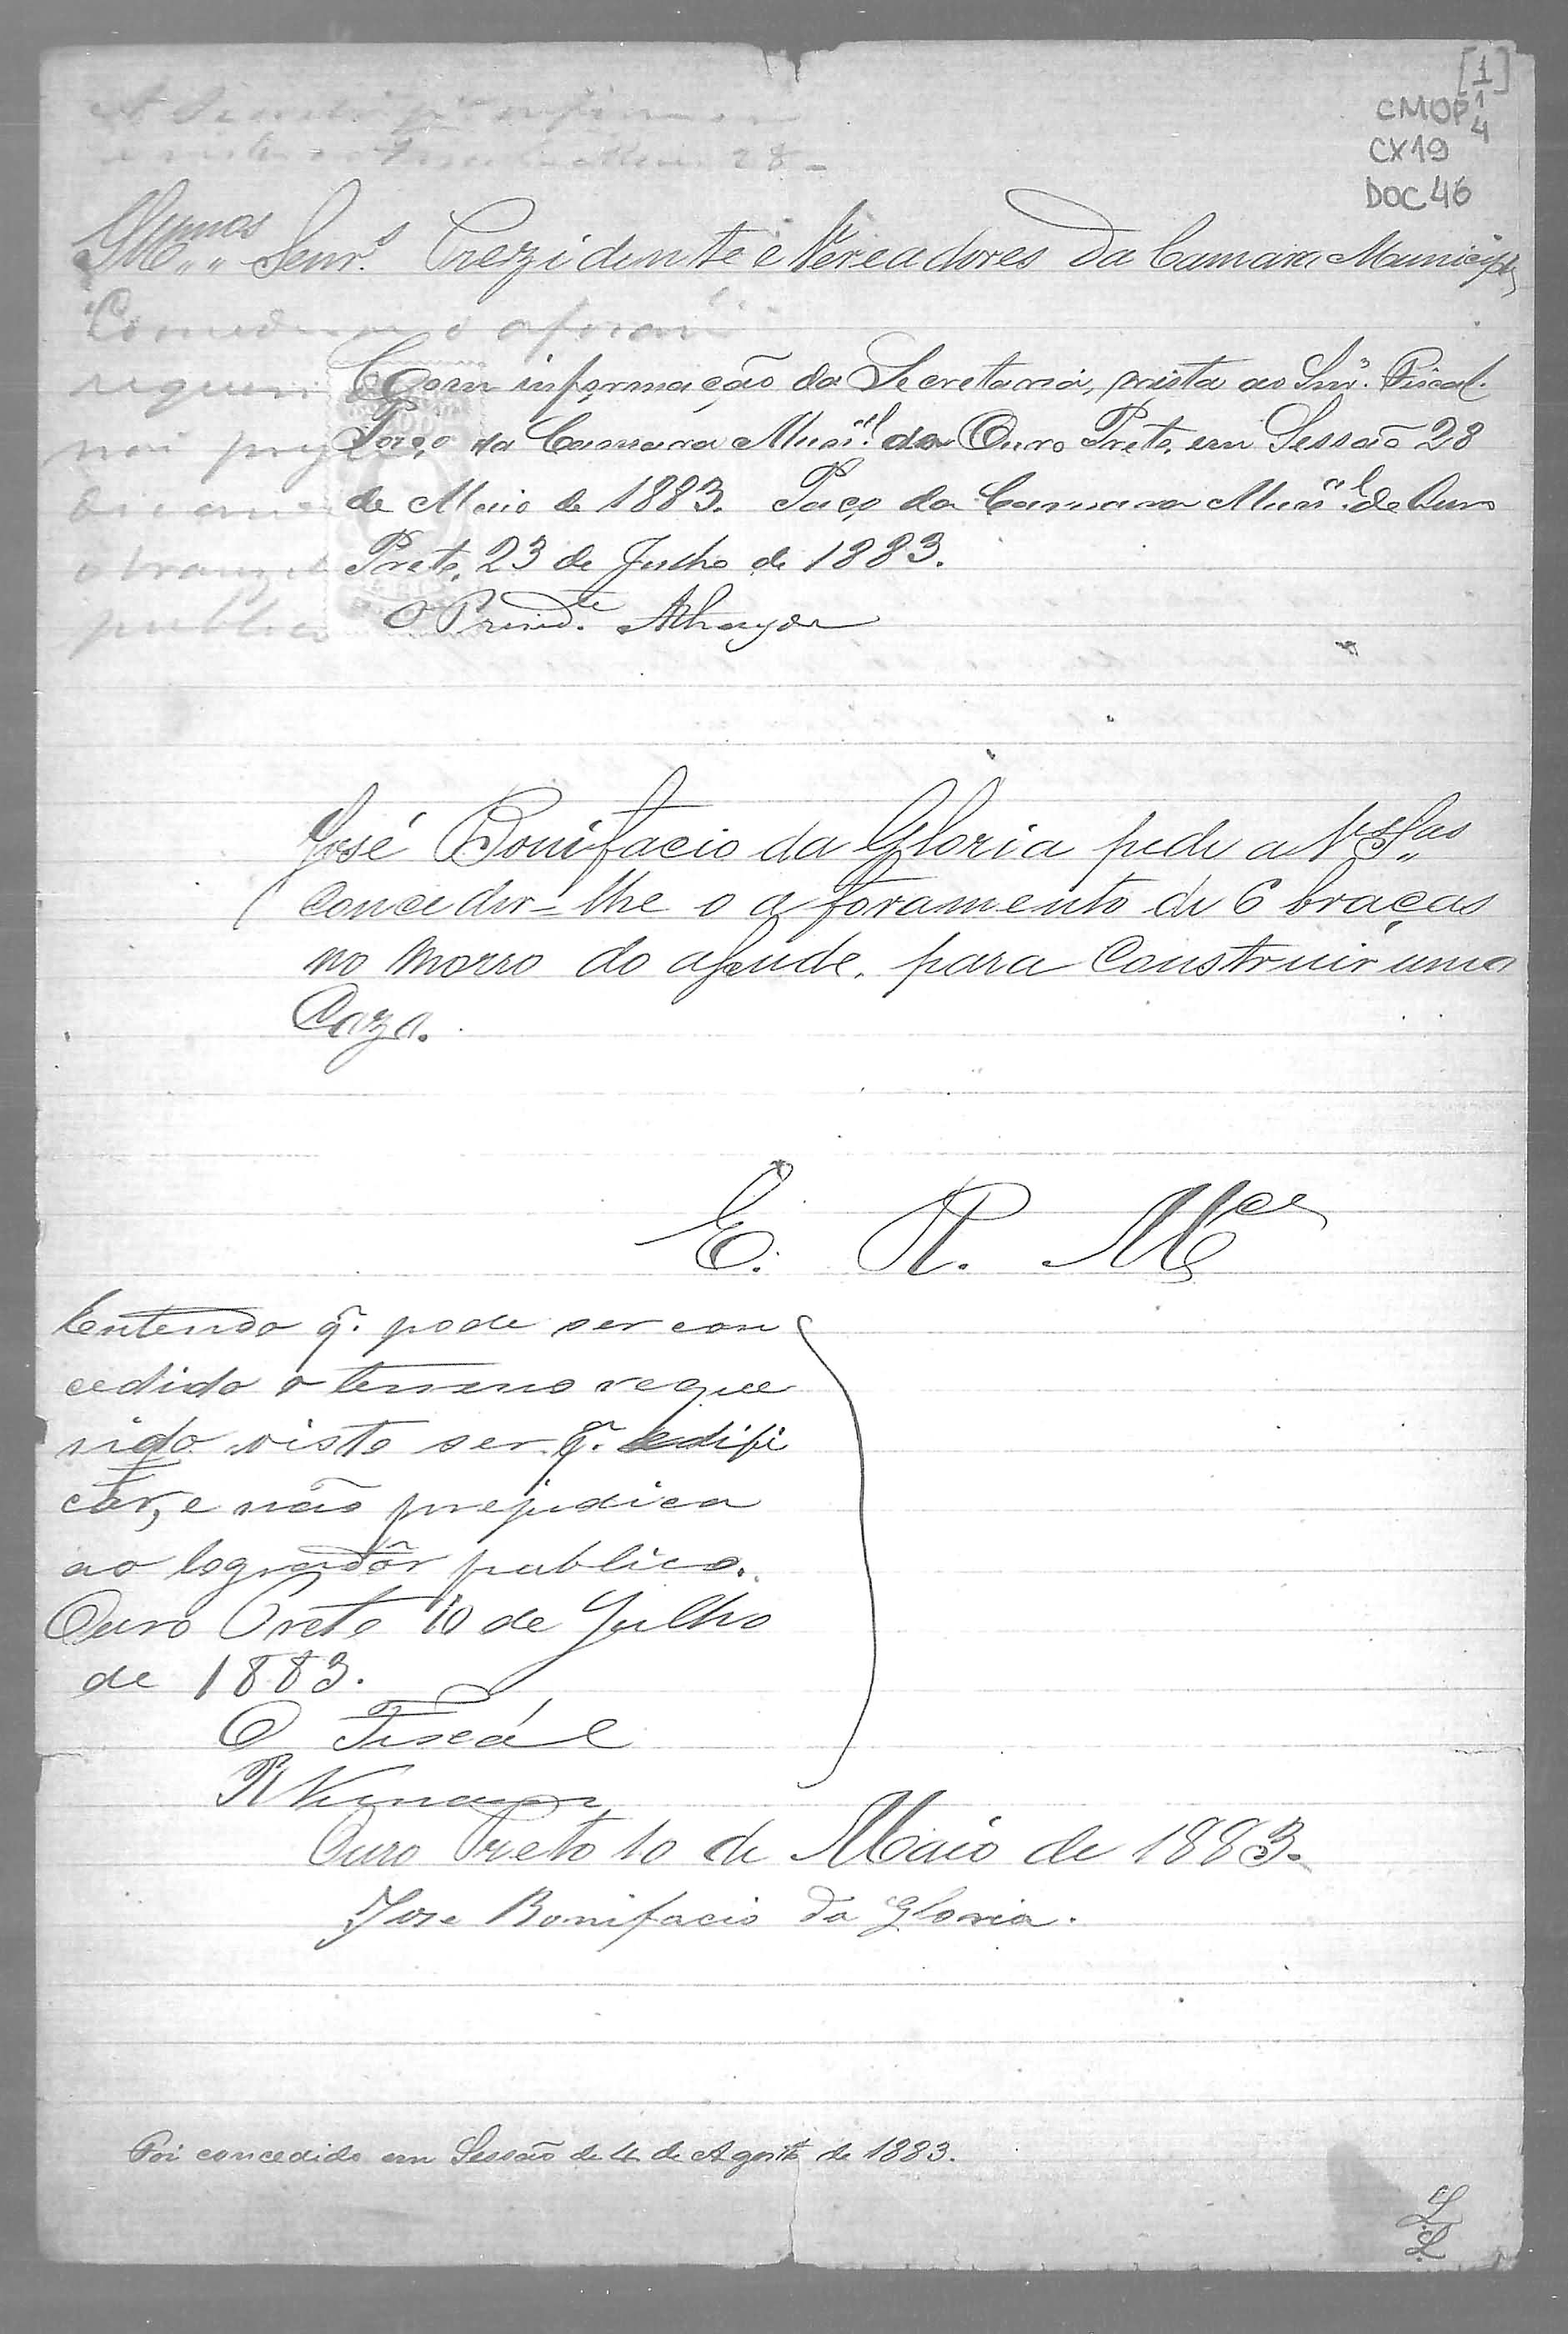 [1]
CMOP 1
4
CX19
DOC 46
Illmos Senrs. Prezidente e Vereadores da Camara Municipal
Concede-se o aforam
requeri
não prej
publico
Com informação da Secretaria, vista ao Snr. Fiscal.
Paço da Camara Munal. de Ouro Preto, em Sessão 28
de Maio de 1883. Paço da Camara Munal. de Ouro
Preto, 23 de Julho de 1883.
O Prezide. Athayde
José Bonifacio da Gloria pede a VSas
conceder-lhe o aforamento de 6 braças
no morro do asude, para construir uma
Caza.
E. R. Mce
Entendo q. pode ser con
cedido o terreno reque
rido visto ser p. edifi
car, e não prejudica
ao logradôr publico.
Ouro Preto 10 de Julho
de 1883.
O Fiscál
Ouro Preto 10 de Maio de 1883.
Jose Bonifacio da Gloria.
Foi concedido em Sessão de 4 de Agosto de 1883.